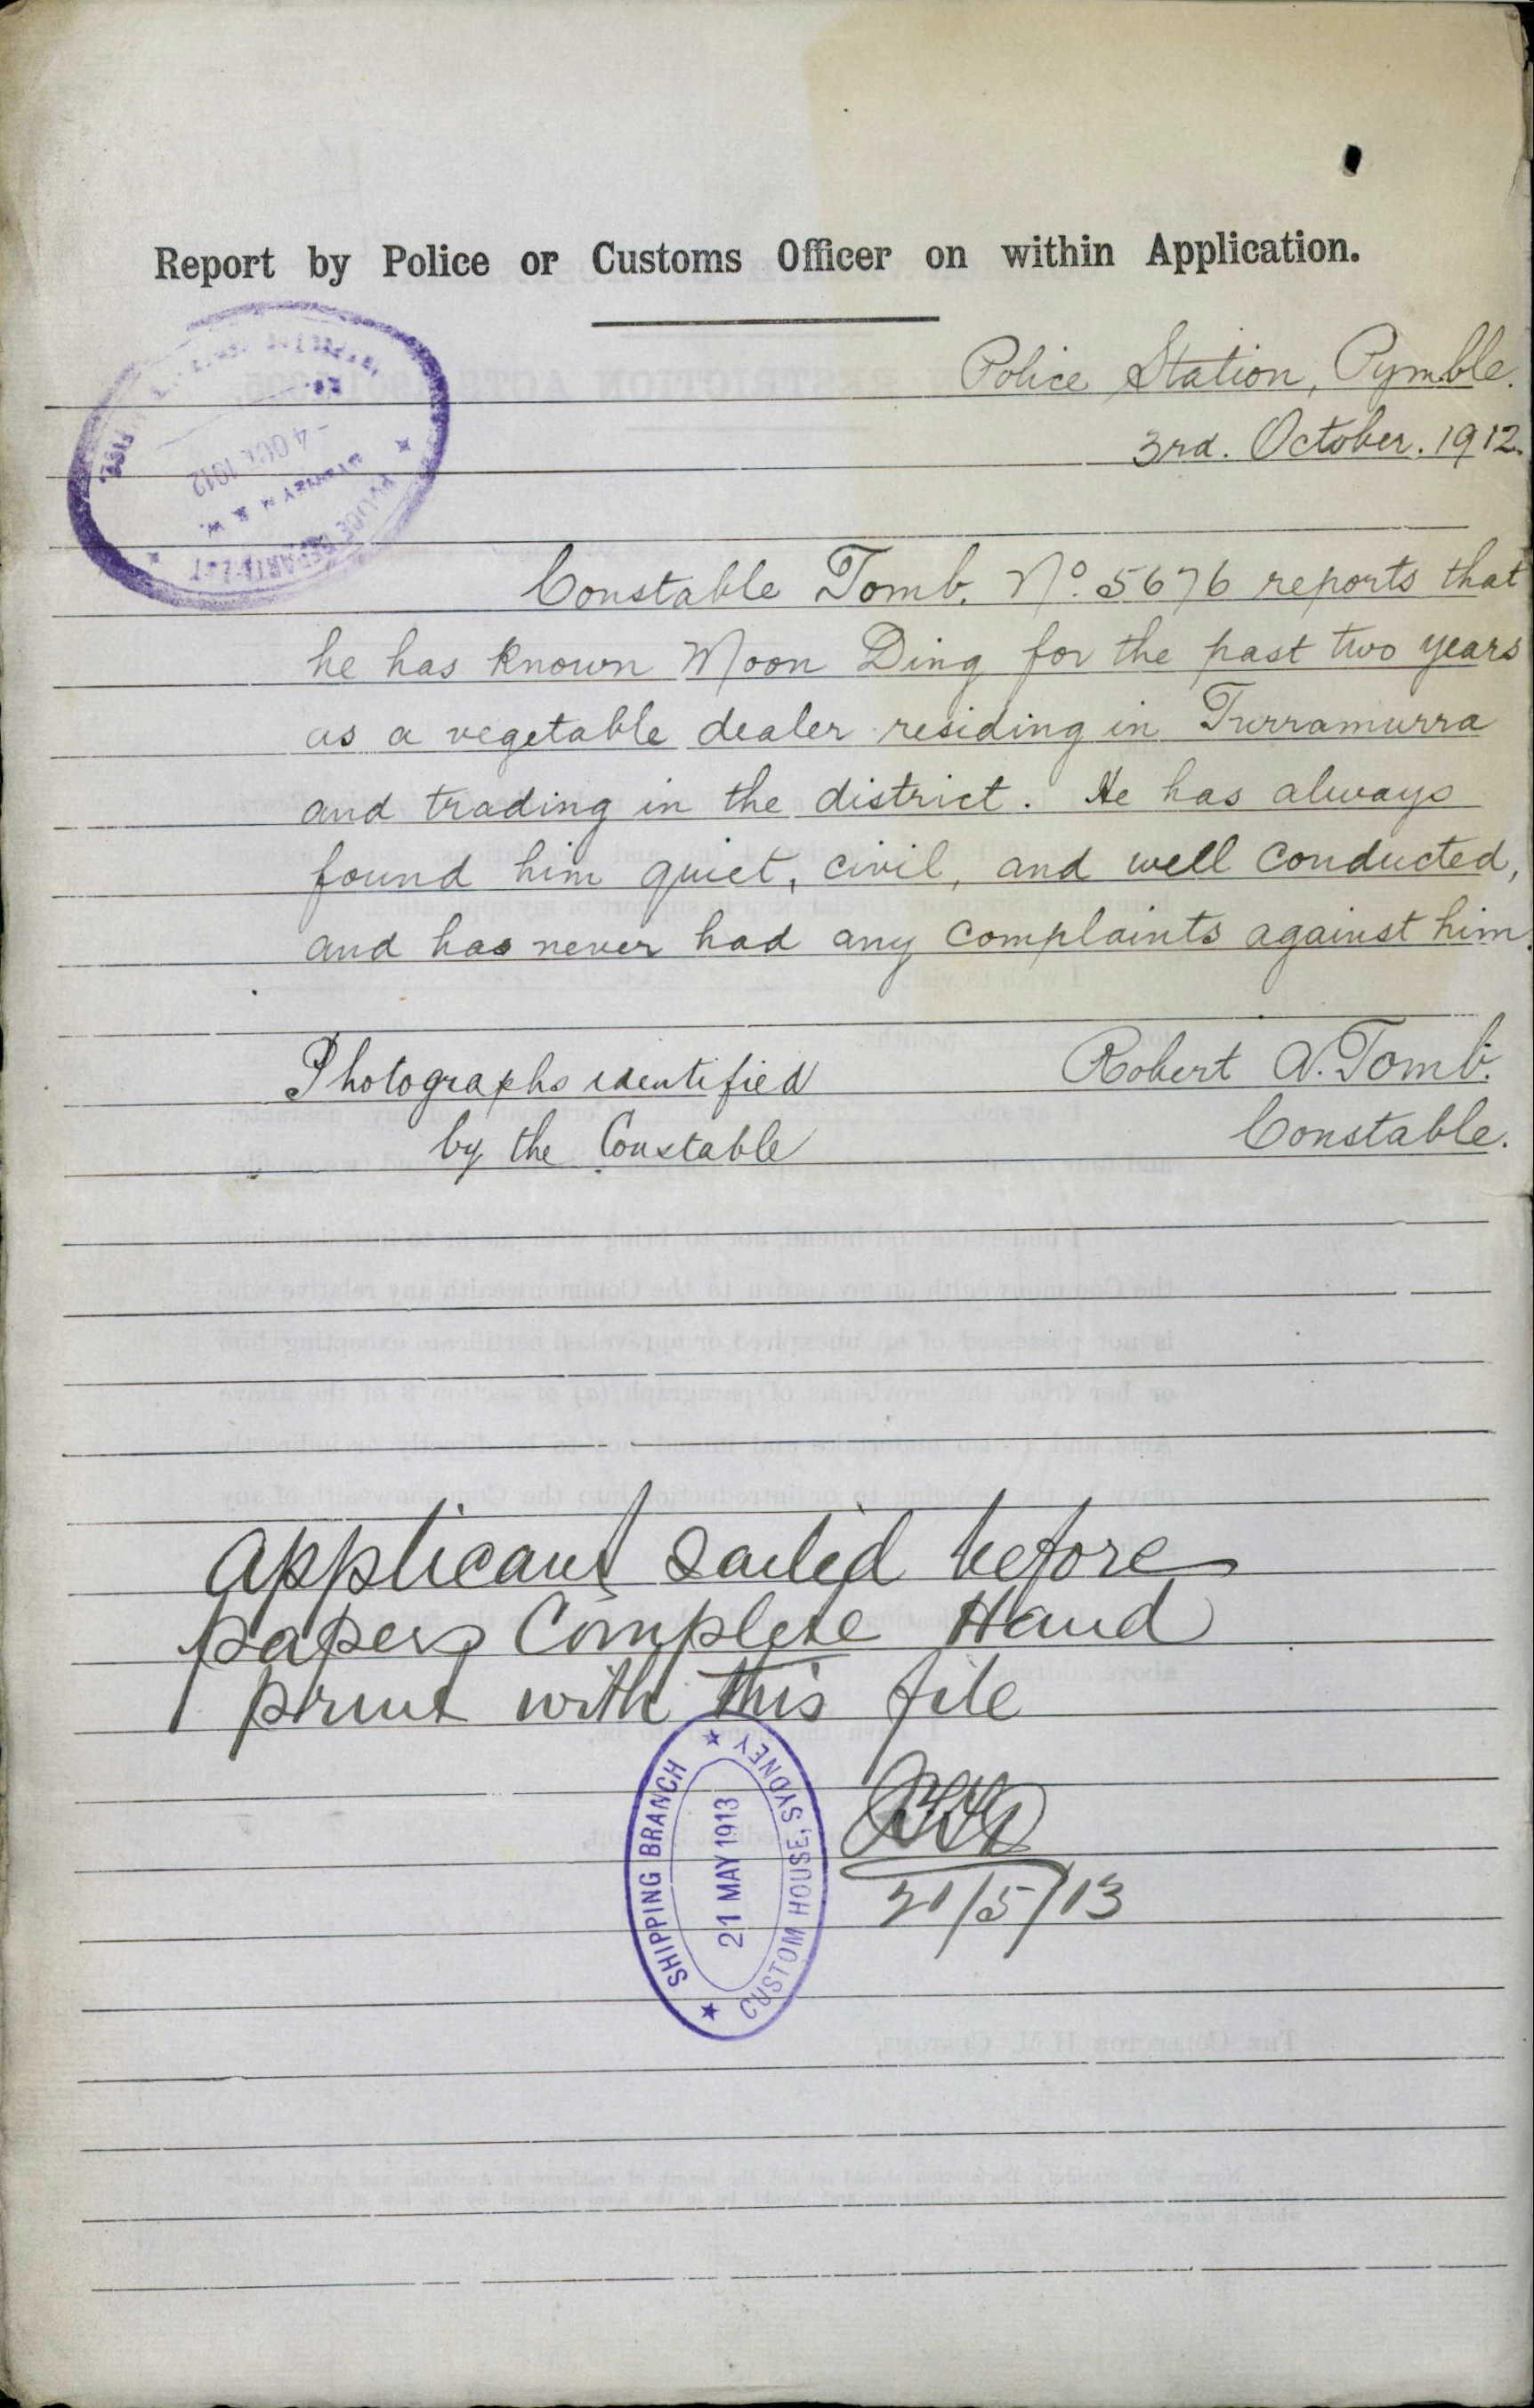 Report by Police or Customs Officer on within Application.
Police Station, Pymble.
3rd. October. 1912.
- 4 OCT 1912
SYDNEY N.S.W.
POLICE DEPARTMENT
Constable Tomb. No. 5676 reports that
he has known Moon Ding for the past two years
as a vegetable dealer residing in Turramurra
and trading in the district. He has always
found him quiet, civil, and well conducted,
and has never had any complaints against him.
Photographs identified
by the Constable
Robert A. Tomb.
Constable.
Applicant sailed before
papers Complete Hand
print with this file
SHIPPING BRANCH
21 MAY 1913
CUSTOM HOUSE, SYDNEY
21/5/13